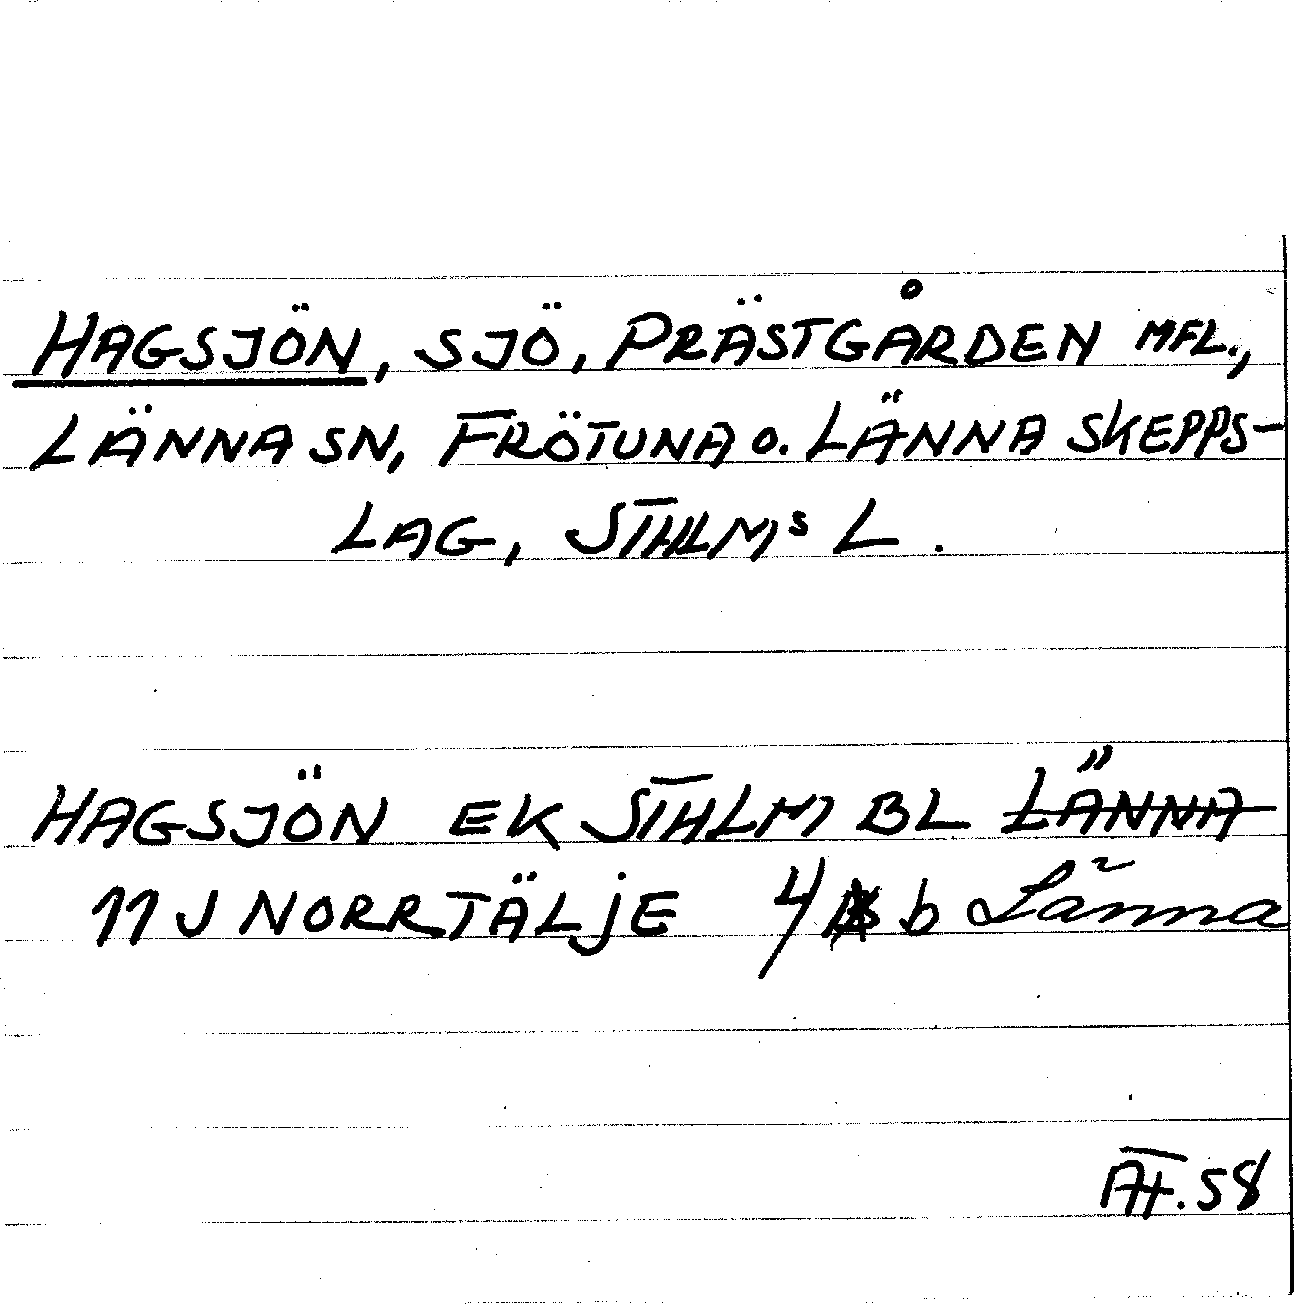 HAGSJÖN, SJÖ, PRÄSTGÅRDEN MFL.,
LÄNNA SN, FRÖTUNA O. LÄNNA SKEPPS-
LAG, STHLMS L.
HAGSJÖN EK STHLM BL LÄNNA
11 J NORRTÄLJE 4 b Länna
AF. 58